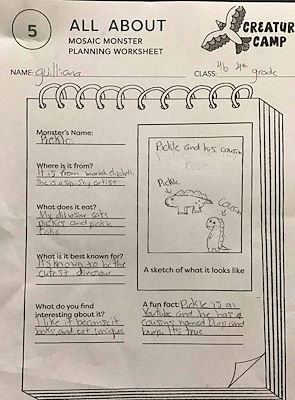 5
ALL ABOUT
MOSAIC MONSTER
PLANNING WORKSHEET
CREATUR
CAMP
NAME: guilliana
CLASS: 4b 4th grade
Monster's Name:
Pickle
Where is it from?
It is from mariah elizabeth
She is a squishy artist
What does it eat?
My dinosaur eats
pickles and pickle
What is it best known for?
It's known to be the
cutest dinosaur
What do you find
interesting about it?
I like it because it
looks, and eat unique
Pickle and his cousin
Pickle
Cousin
A sketch of what it looks like
A fun fact: Pickle is on
Youtube and he has 2
cousins named Dump and
bump. It's true